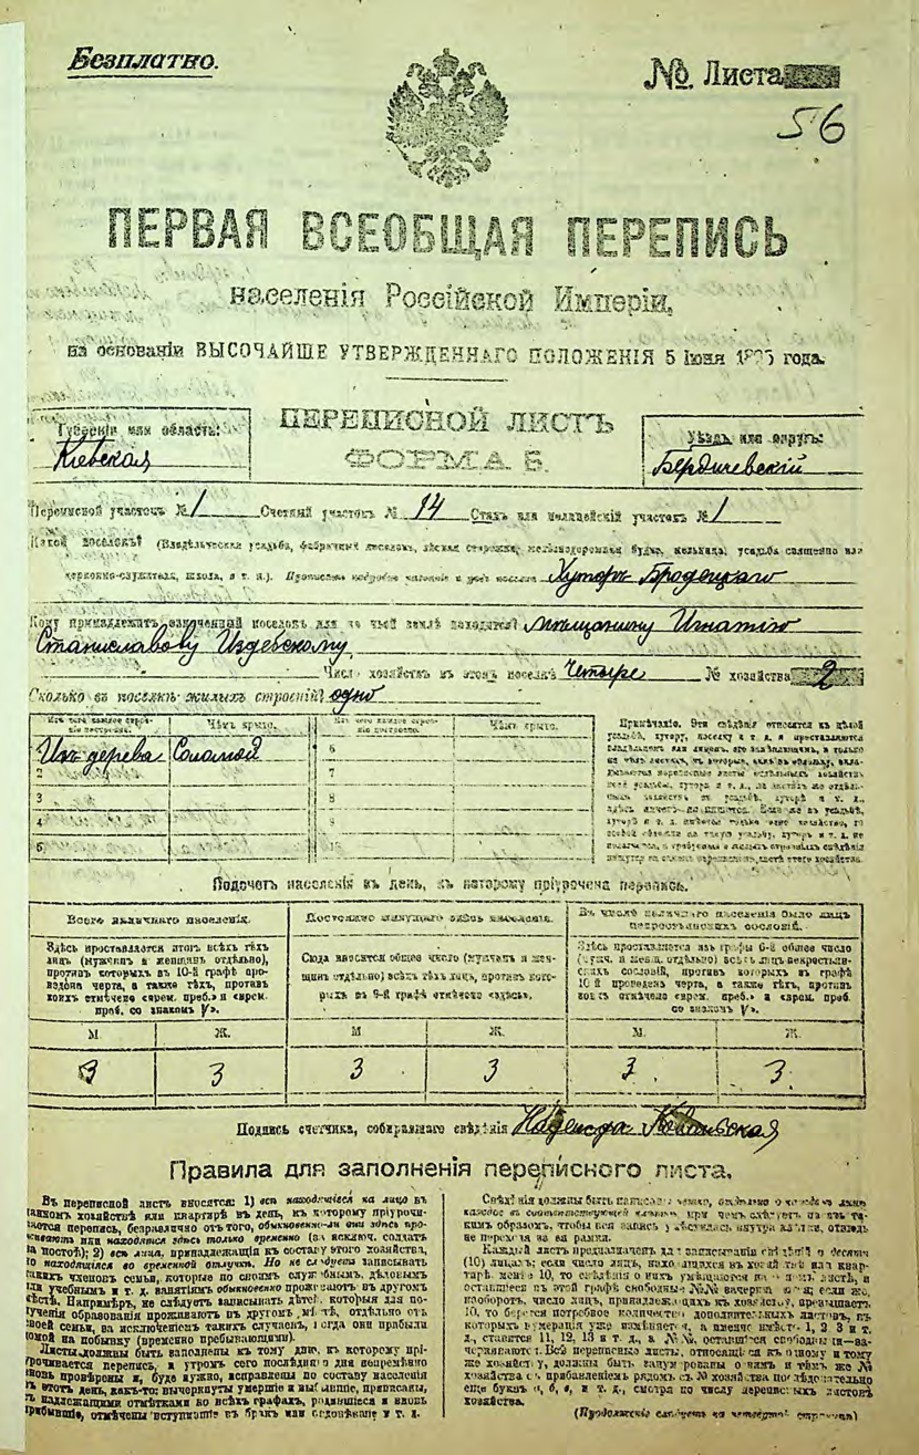 Безплатно.
№ Листа
56
ПЕРВАЯ ВСЕОБЩАЯ ПЕРЕПИСЬ
населенія Россійской Имперіи,
на основаніи ВЫСОЧАЙШЕ УТВЕРЖДЕННАГО ПОЛОЖЕНІЯ 5 Іюня 1895 года.
ПЕРЕПИСНОЙ ЛИСТЪ
ФОРМА Б.
Губернія или область:
Кіевская
Уѣздъ или округъ:
Бердичевскій
Переписной участокъ № 1 Счетный участокъ № 14 Станъ или полицейскій участокъ № 1
Какой поселокъ? (Владѣльческая усадьба, фабричный поселокъ, лѣсная сторожка, желѣзнодорожная будка, мельница, усадьба священно или
церковно-служителя, школа, и т. п.). Прописать подробно названіе и родъ поселка Хуторъ Бродецкаго
Кому принадлежитъ означенный поселокъ или на чьей землѣ находится? мѣщанину Игнатію
Станиславову Издебскому
Число хозяйствъ въ этомъ поселкѣ Четыре № хозяйства 2
Сколько въ поселкѣ жилыхъ строеній? одно
Изъ чего каждое строеніе построено. Чѣмъ крыто. Изъ чего каждое строеніе построено. Чѣмъ крыто.
Изъ дерева Соломой 6
2 7
3 8
4 9
5
Примѣчаніе. Эти свѣдѣнія относятся къ цѣлой
усадьбѣ, хутору, поселку и т. д. и проставляются
Подсчетъ населенія въ день, къ которому пріурочена перепись.
Всего наличнаго населенія.
Здѣсь проставляется итогъ всѣхъ тѣхъ
лицъ (мужчинъ и женщинъ отдѣльно),
противъ которыхъ въ 10-й графѣ про-
ведена черта, а также тѣхъ, противъ
коихъ отмѣчено «врем. преб.» и «врем.
преб. со знакомъ V».
Постоянно живущаго здѣсь населенія.
Сюда вносится общее число (мужчинъ и жен-
щинъ отдѣльно) всѣхъ тѣхъ лицъ, противъ кото-
рыхъ въ 9-й графѣ отмѣчено «здѣсь».
Въ числѣ наличнаго населенія было лицъ
некрестьянскихъ сословій.
Здѣсь проставляется изъ графы 6-й общее число
(мужч. и женщ. отдѣльно) всѣхъ лицъ некрестьян-
скихъ сословій, противъ которыхъ въ графѣ
10 й проведена черта, а также тѣхъ, противъ
коихъ отмѣчено «врем. преб.» и «врем. преб.
со знакомъ V».
М. Ж. М Ж. М. Ж.
3 3 3 3 3 3
Подпись счетчика, собиравшаго свѣдѣнія Надежда
Правила для заполненія переписного листа.
Въ переписной листъ вносятся: 1) всѣ находящіеся на лицо въ
данномъ хозяйствѣ или квартирѣ въ день, къ которому пріурочи-
вается перепись, безразлично отъ того, обыкновенно-ли они здѣсь про-
живаютъ или находятся здѣсь только временно (за исключ. солдатъ
на постоѣ); 2) всѣ лица, принадлежащія къ составу этого хозяйства,
но находящіяся во временной отлучкѣ. Но не слѣдуетъ записывать
такихъ членовъ семьи, которые по своимъ служебнымъ, дѣловымъ
или учебнымъ и т. д. занятіямъ обыкновенно проживаютъ въ другомъ
мѣстѣ. Напримѣръ, не слѣдуетъ записывать дѣтей, которыя для по-
лученія образованія проживаютъ въ другомъ мѣстѣ, отдѣльно отъ
своей семьи, за исключеніемъ такихъ случаевъ, когда они прибыли
домой на побывку (временно пребывающими).
Листы должны быть заполнены къ тому дню, къ которому прі-
урочивается перепись, и утромъ сего послѣдняго дня непремѣнно
вновь провѣрены и, буде нужно, исправлены по составу населенія
въ этотъ день, какъ-то: вычеркнуты умершіе и выбывшіе, приписаны,
съ надлежащими отмѣтками во всѣхъ графахъ, родившіеся и вновь
прибывшіе, отмѣчены вступившіе въ бракъ или овдовѣвшіе и т. д.
Свѣдѣнія должны быть написаны четко, отдѣльно о каждомъ лицѣ
каждое въ соответствующей клеткѣ, при чемъ слѣдуетъ писать та-
кимъ образомъ, чтобы вся запись умѣстилась внутри клѣтки, отнюдь
не переходя за ея рамки.
Каждый листъ предназначенъ для записыванія свѣдѣній о десяти
(10) лицахъ; если число лицъ, находящихся въ хозяйствѣ или квар-
тирѣ, менѣе 10, то свѣдѣнія о нихъ умѣщаются на одномъ листѣ, а
оставшіеся въ этой графѣ свободные №№ зачеркиваются; если же,
наоборотъ, число лицъ, принадлежащихъ къ хозяйству, превышаетъ
10, то берется потребное количество дополнительныхъ листовъ, въ
которыхъ нумерація уже измѣняется, а именно вмѣсто 1, 2 3 и т.
д., ставится 11, 12, 13 и т. д., а №№, оставшіеся свободными—за-
черкиваются. Всѣ переписные листы, относящіеся къ одному и тому
же хозяйству, должны быть занумерованы однимъ и тѣмъ же №
хозяйства съ прибавленіемъ рядомъ съ № хозяйства послѣдовательно
еще буквъ а, б, в, и т. д., смотря по числу переписныхъ листовъ
хозяйства.
(Продолженіе слѣдуетъ на четвертой страницѣ)